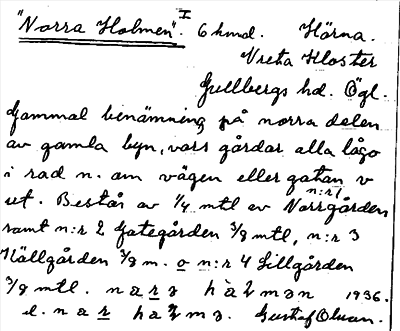 "Norra Holmen". I 6 hmd. Hörna.
Vreta Kloster
Gullbergs hd. Ögl.
Gammal benämning på norra delen
av gamla byn, vars gårdar alla lågo
i rad n. om vägen eller gatan v
ut. Består av 1/4 mtl av n:r 1 Norrgården
samt n:r 2 Gategården 3/8 mtl, n:r 3
Källgården 3/8 m. o n:r 4 Lillgården
3/8 mtl. 1936.
Gustaf Olsson.